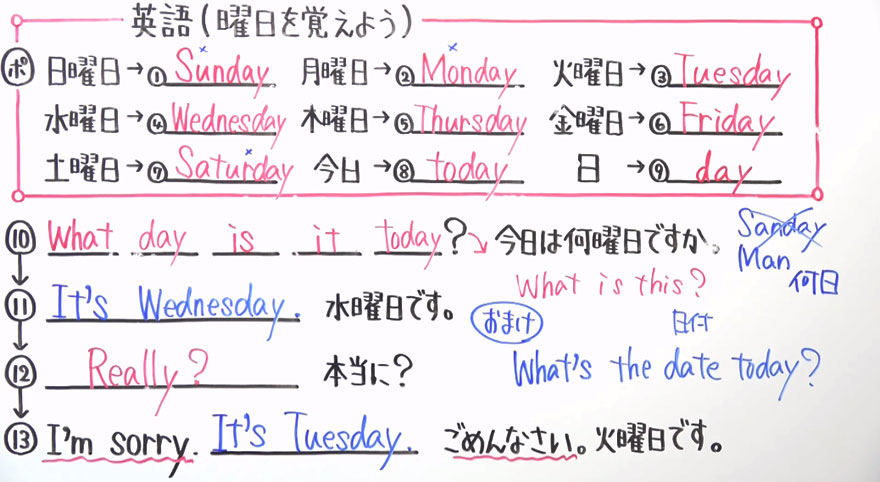 英語(曜日を覚えよう)
ポ 日曜日→① Sunday 月曜日→② Monday 火曜日→③ Tuesday
水曜日→④ Wednesday 木曜日→⑤ Thursday 金曜日→⑥ Friday
土曜日→⑦ Saturday 今日→⑧ today 日→⑨ day
⑩ What day is it today? 今日は何曜日ですか。
Sanday
Man
What is this? 何日
⑪ It's Wednesday. 水曜日です。
おまけ 日付
What's the date today?
⑫ Really? 本当に?
⑬ I'm sorry. It's Tuesday. ごめんなさい。火曜日です。